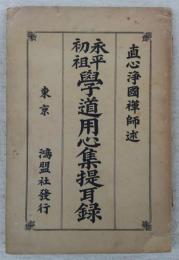 直心淨國禪師述
永平
初祖
學道用心集提耳錄
東京 鴻盟社發行